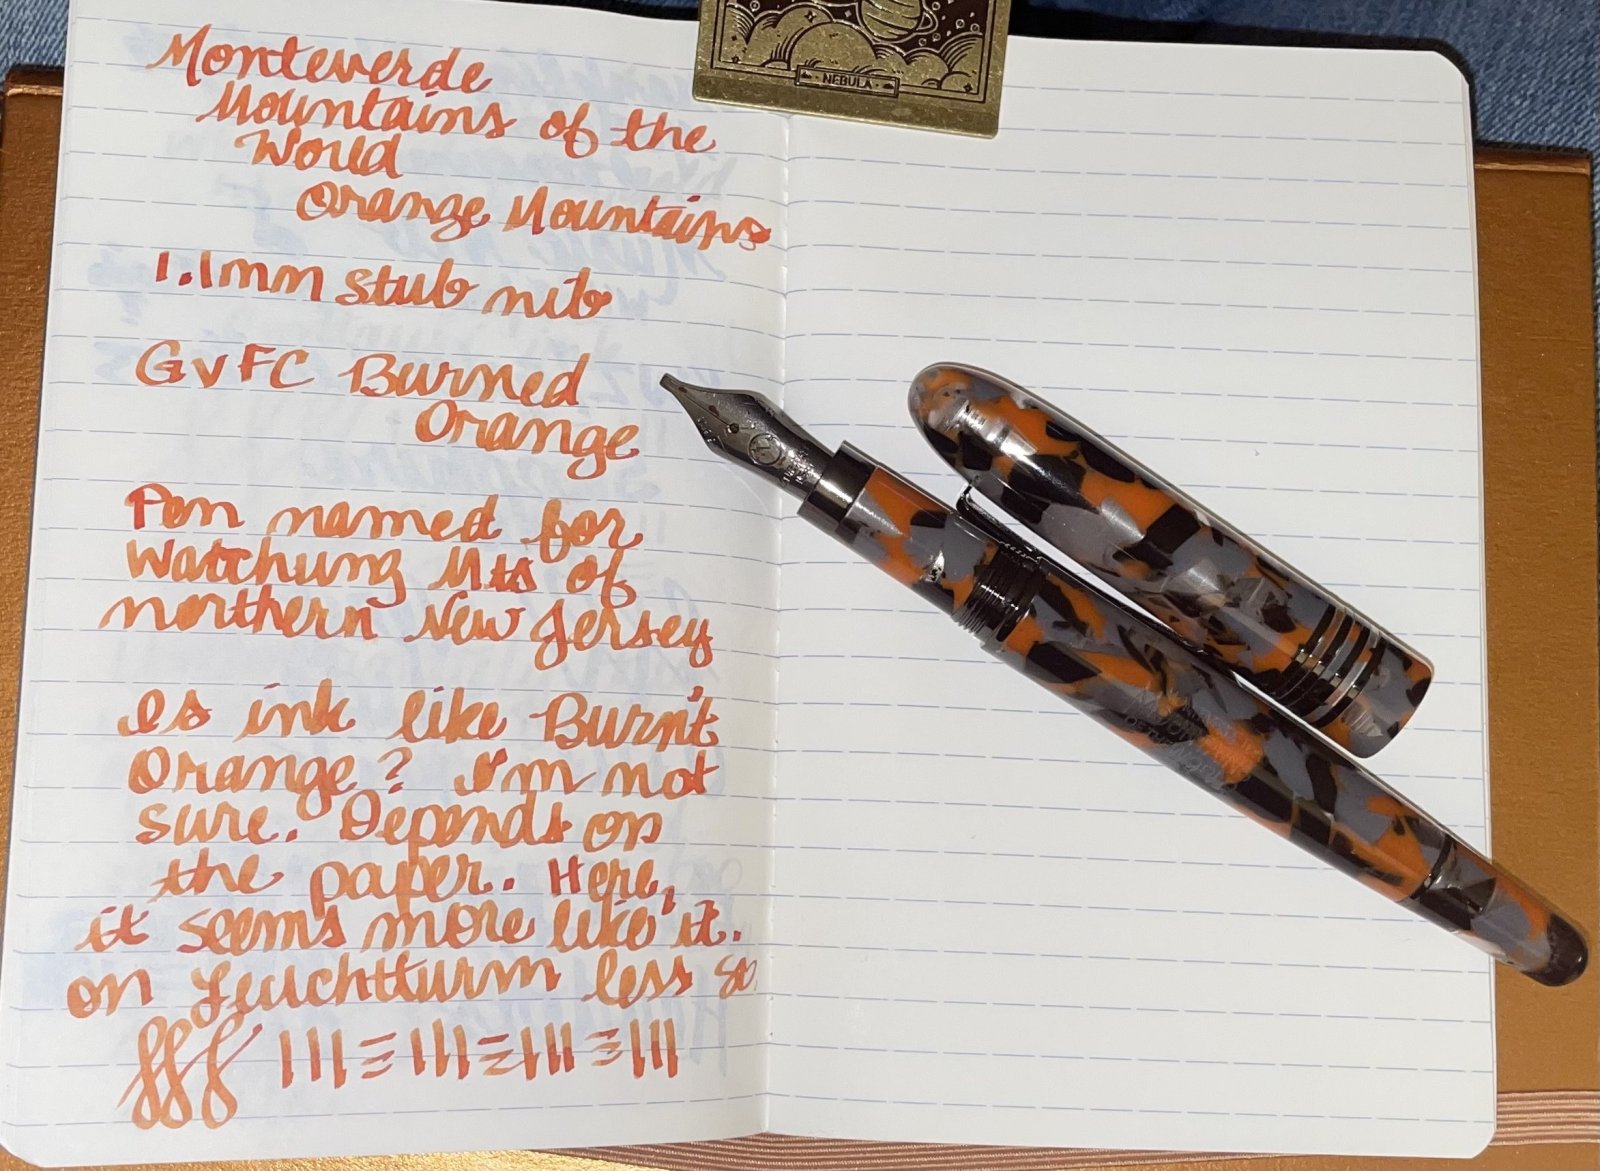 Monteverde
Mountains of the
World
Orange Mountains
1.1mm stub nib
GvFC Burned
Orange
Pen named for
Watchung Mts of
northern New Jersey
Is ink like Burnt
Orange? I'm not
sure. Depends on
the paper. Here,
it seems more like it.
on Leuchtturm less so.
NEBULA